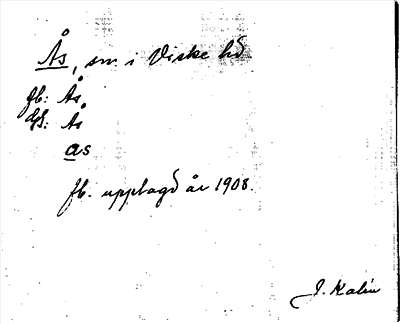 Ås, sn i Viske hd
jb: Ås
dſ: Ås
as
jb. upplagd år 1908.
J. Kalén